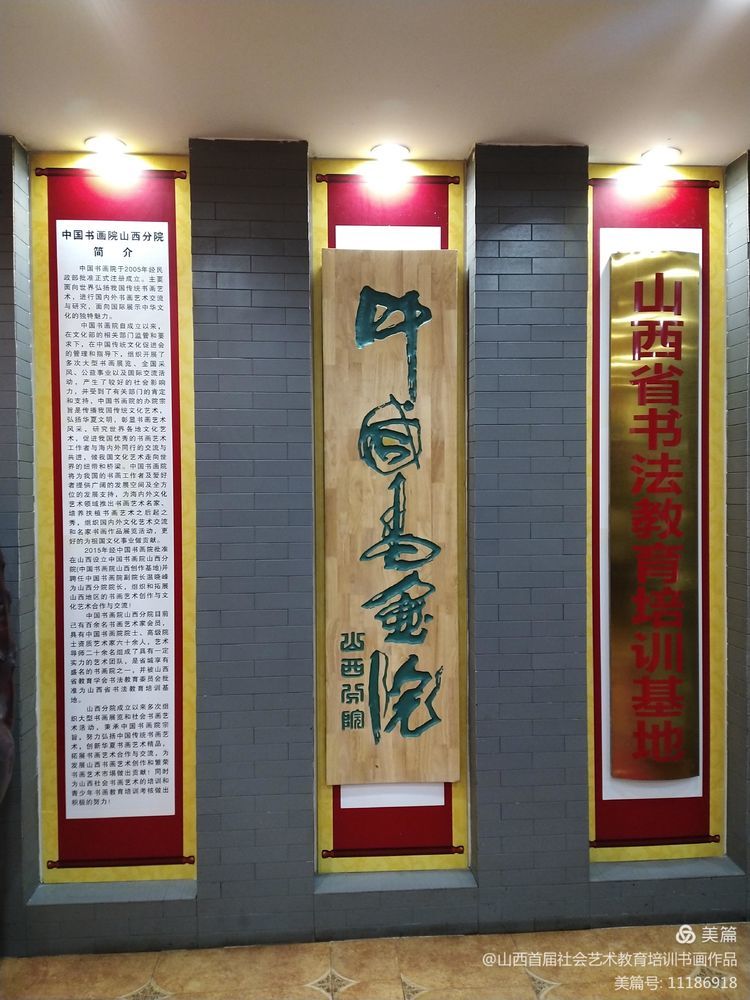 中国书画院山西分院
简 介
中国书画院于2005年经民
政部批准正式注册成立。主要
面向世界弘扬我国传统书画艺
术，进行国内外书画艺术交流
与研究，面向国际展示中华文
化的独特魅力。
中国书画院自成立以来，
在文化部的相关部门监管和要
求下，在中国传统文化促进会
的管理和指导下，组织开展了
多次大型书画展览、全国采
风、公益事业以及国际交流活
动，产生了较好的社会影响
力，并受到了有关部门的肯定
和支持，中国书画院的办院宗
旨是传播我国传统文化艺术，
弘扬华夏文明，彰显书画艺术
风采，研究世界各地文化艺
术，促进我国优秀的书画艺术
工作者与海内外同行的交流与
共进，做我国文化艺术走向世
界的纽带和桥梁。中国书画院
将为我国的书画工作者及爱好
者提供广阔的发展空间及全方
位的发展支持，为海内外文化
艺术领域推出书画艺术名家、
培养扶植书画艺术之后起之
秀，组织国内外文化艺术交流
和名家书画作品展览活动，更
好的为祖国文化事业做贡献。
2015年经中国书画院批准
在山西设立中国书画院山西分
院(中国书画院山西创作基地)并
聘任中国书画院副院长温晓峰
为山西分院院长，组织和拓展
山西地区的书画艺术创作与文
化艺术合作与交流！
中国书画院山西分院目前
已有百余名书画艺术家会员，
具有中国书画院院士、高级院
士资质艺术家六十余人，艺术
导师二十余名组成了具有一定
实力的艺术团队，是省城享有
盛名的书画院之一，并被山西
省教育学会书法教育委员会批
准为山西省书法教育培训基
地。
山西分院成立以来多次组
织大型书画展览和社会书画艺
术活动，秉承中国书画院宗
旨，努力弘扬中国传统书画艺
术，创新华夏书画艺术精品，
拓展书画艺术合作与交流，为
发展山西书画艺术创作和繁荣
书画艺术市场做出贡献！同时
为山西社会书画艺术的培训和
青少年书画教育培训考核做出
积极的努力！
中国书画院
山西分院
山西省书法教育培训基地
美篇
@山西首届社会艺术教育培训书画作品
美篇号: 11186918